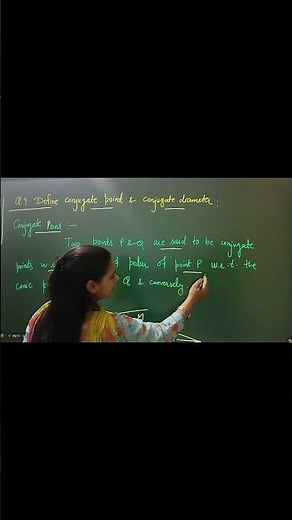 Q.9. Define conjugate point & conjugate diameter :
Conjugate Point :-
Two points P & Q are said to be conjugate
points w.r.t. polar of point P w.r.t. the
conic Q & conversely.